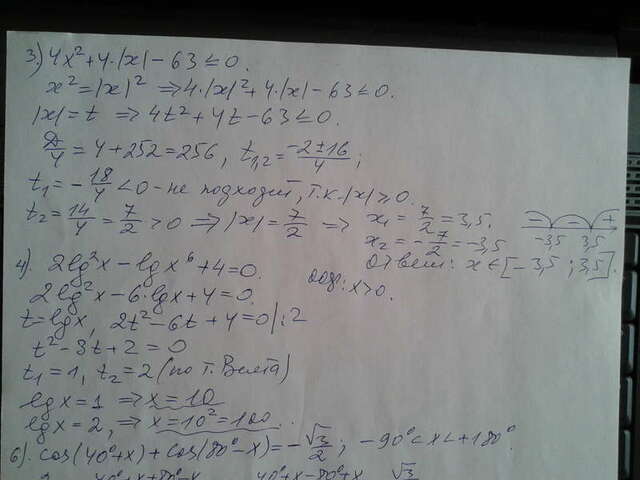 3.) 4x²+4·|x|-63≤0.
x²=|x|² ⇒4·|x|²+4·|x|-63≤0.
|x|=t ⇒ 4t²+4t-63≤0.
D/4=4+252=256, t₁,₂=(-2±16)/4;
t₁=-18/4<0-не подходит, т.к. |x|≥0.
t₂=14/4=7/2>0 ⇒|x|=7/2 ⇒ x₁=7/2=3,5.
x₂=-7/2=-3,5
- - +
-3,5 3,5
Ответ: x∈[-3,5;3,5].
4). 2lg²x-lgx⁶+4=0.
2lg²x-6·lgx+4=0. x>0.
t=lgx, 2t²-6t+4=0|:2
t²-3t+2=0
t₁=1, t₂=2 (по т. Виета)
lgx=1 ⇒x=10
lgx=2, ⇒x=10²=100.
6). cos(40°+x)+cos(80°-x)=-√3/2; -90°<x<+180°.
40°+x+80°-x 40°+x-80°+x √3